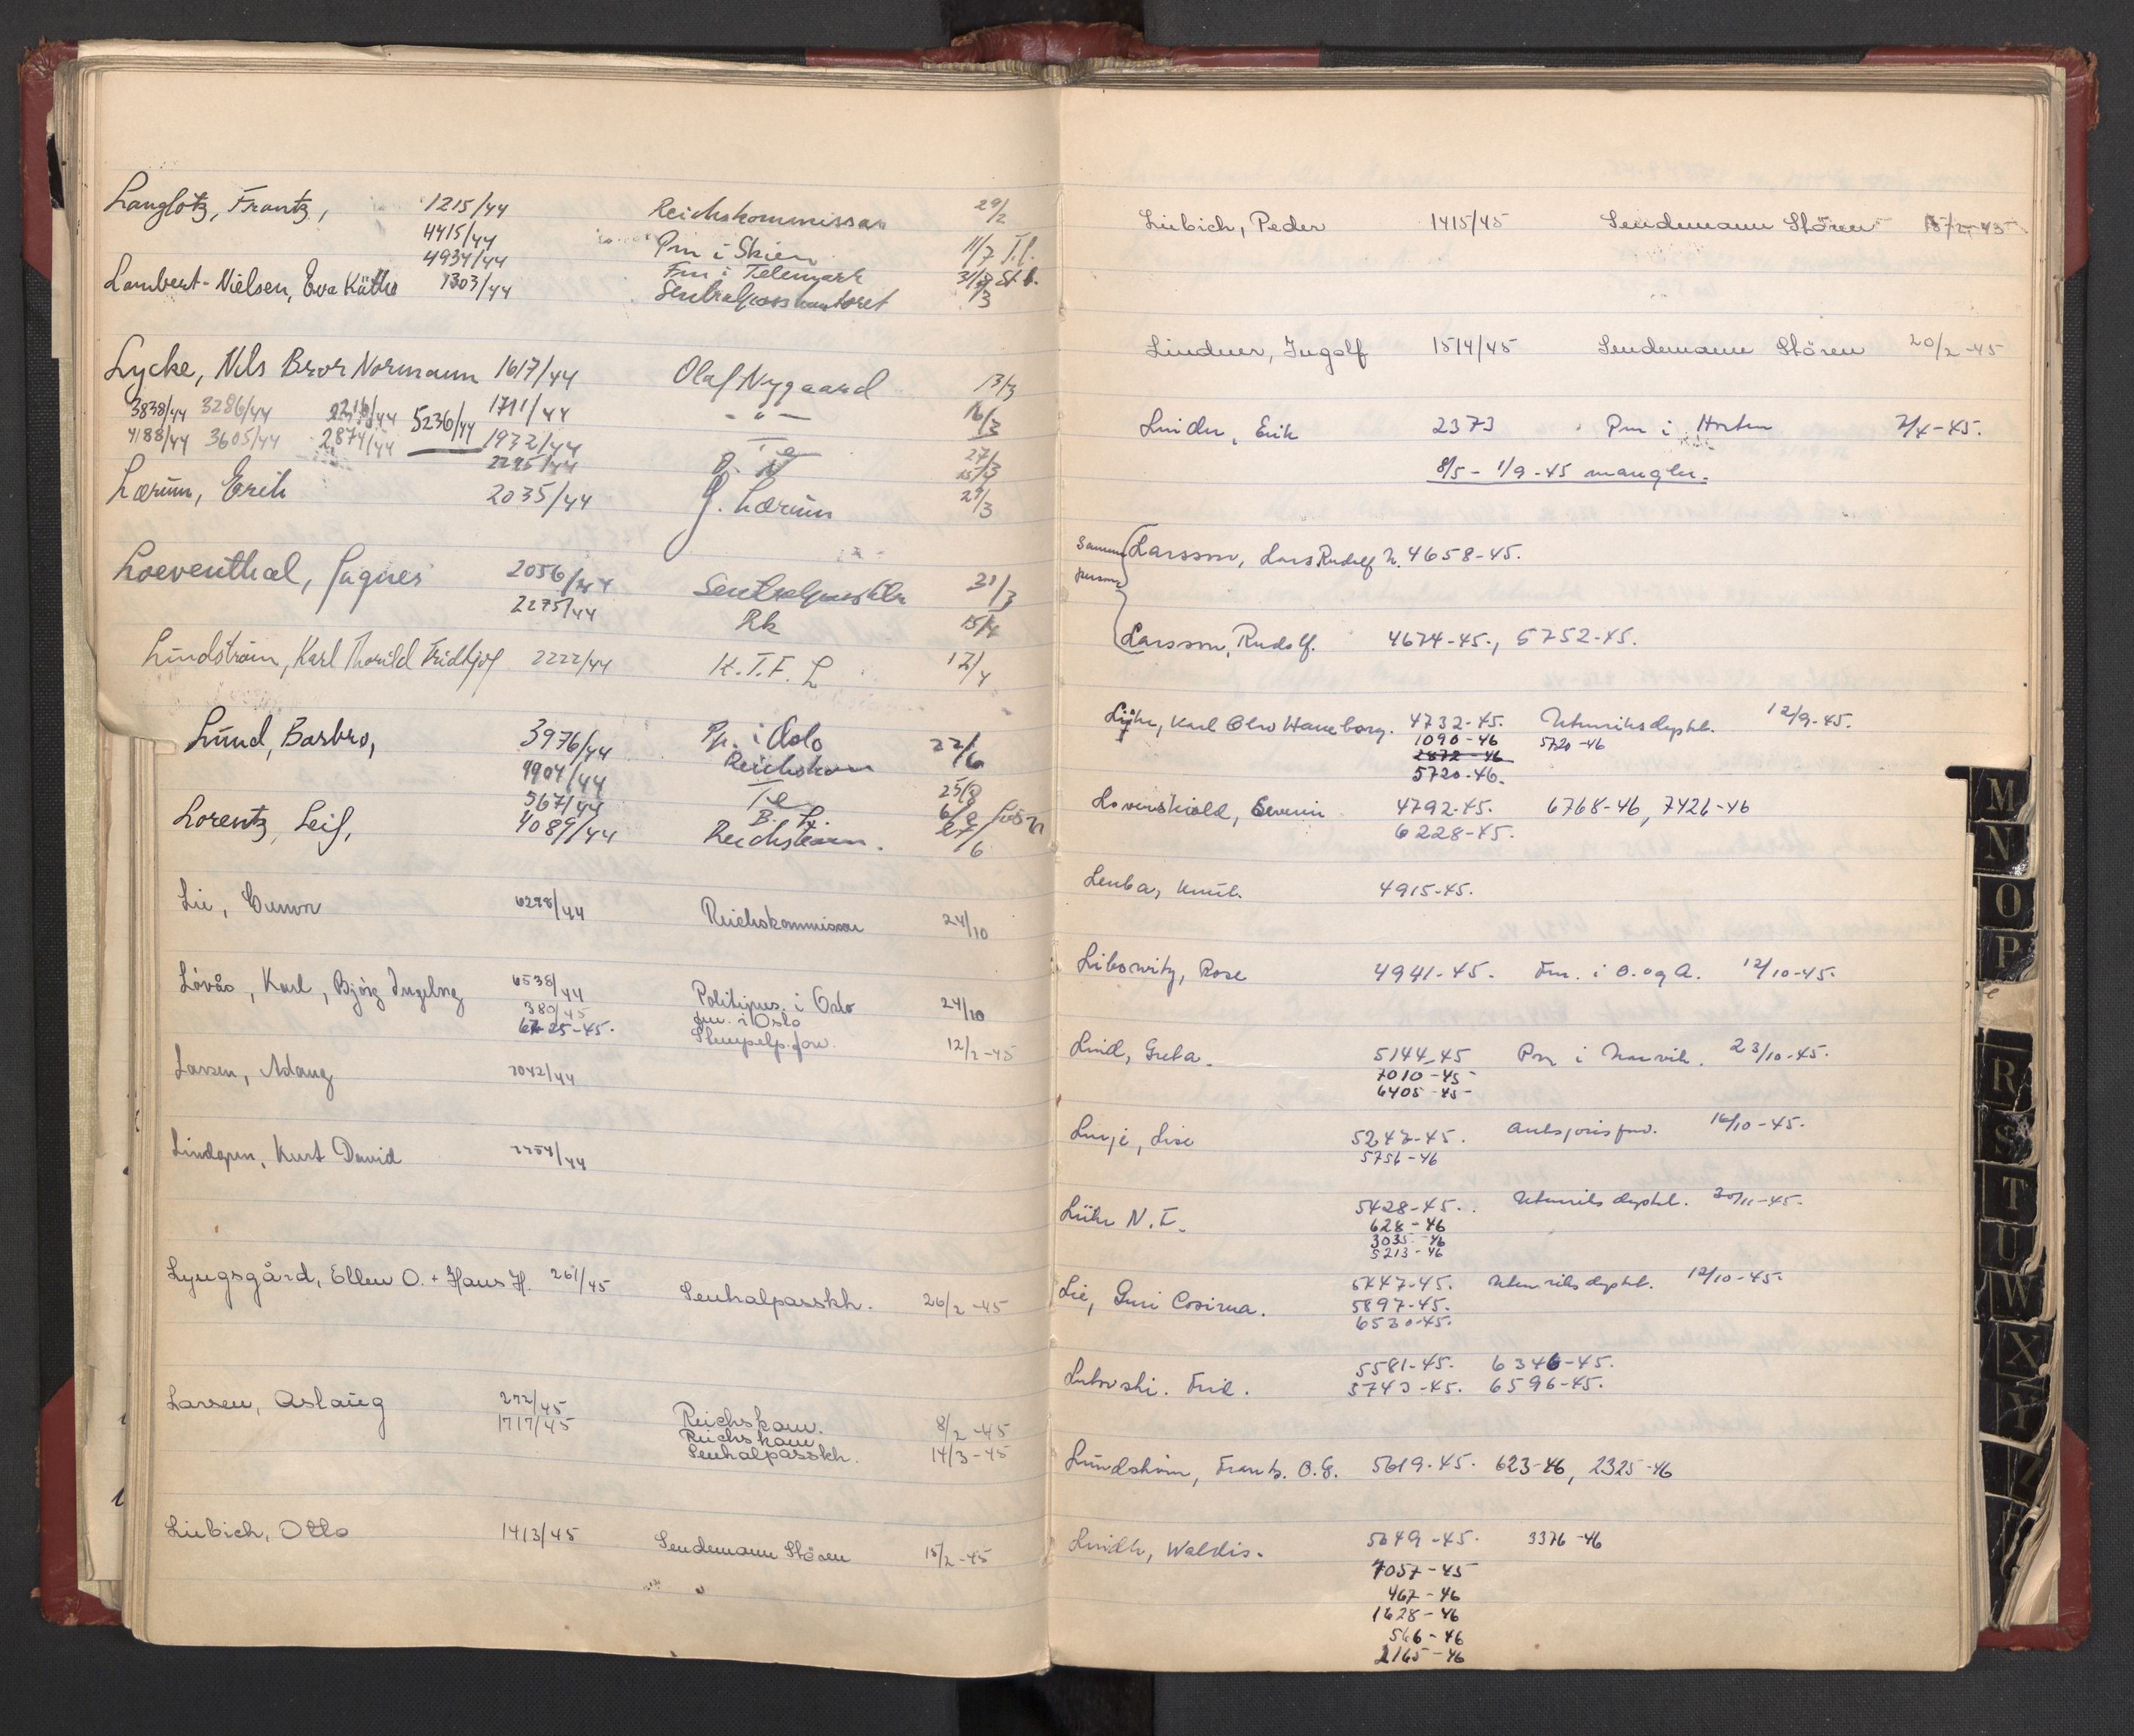 Langlotz, Frantz, 1215/44 Reichskommissar 29/2
4415/44 Pm i Skien 11/7 T.f.
4934/44 Fm i Telemark 31/8 St.b.
Lambert-Nielsen, Eva Käthe 1303/44 Sentralpasskontoret /3
Lycke, Nils Bror Normann 1617/44 Olaf Nygaard 13/3
3838/44 3286/44 2216/44 5236/44 1711/44 - " - 16/3
4188/44 3605/44 2874/44 1932/44 Te 27/3
2295/44 O. N 15/3
Lærum, Erik 2035/44 J. Lærum 29/3
Loeventhal, Agnes 2056/44 Sentralpassktr 31/3
2275/44 Rk 15/4
Lindstrøm, Karl Thorild Fridtjof 2222/44 K.T.F. L 12/4
Lund, Barbro, 3976/44 Pp. i Oslo 22/6
9904/44 Reichskom
567/44 Te 25/8
B. L. 6/2
Lorentz, Leif, 4089/44 Reichskom. 27/6
Lie, Gunvor 6298/44 Reichskommissar 24/10
Løvås, Karl, Bjørg Ingeborg 6538/44 Politipres. i Oslo 24/10
380/45 fm. i Oslo
6725-45. Stempelp.forv. 12/2-45
Larsen, Aslaug 7042/44
Lindgren, Kurt David 7254/44
Lyngsgård, Ellen O. + Hans H. 261/45 Sentralpasskt. 26/2-45
Larsen, Aslaug 272/45 Reichskom. 8/2-45
1717/45 Reichskom
Sentralpasskt. 14/3-45
Liebich, Otto 1413/45 Sendemann Stören 15/2-45
Liebich, Peder 1415/45 Sendemann Stören 15/2-45
Lindner, Ingolf 1514/45 Sendemann Stören 20/2-45
Linder, Erik 2373 Pm i Horten 7/4-45.
8/5 - 1/9-45 mangler.
Samme person
Larsson, Lars Rudolf N. 4658-45.
Larsson, Rudolf. 4674-45., 5752-45.
Lühr, Karl Olro Haneborg. 4732-45. Utenriksdeptet. 12/9-45.
1090-46 5720-46
2872-46
5720-46.
Løvenskiold, Severin 4792-45. 6768-46, 7426-46
6228-45.
Lenba, Knut. 4915-45.
Libowitz, Rose 4941-45. Fm. i O. og A. 12/10-45.
Lind, Greta. 5144-45 Pm i Narvik. 23/10-45.
7010-45
6405-45
Linje, Lise 5247-45. 16/10-45.
5756-46
Lühr N. E. 5428-45. Utenriksdeptet. 30/11-45.
628-46
3035-46
5213-46
Lie, Guri Cosirna. 5447-45. Utenriksdeptet. 12/10-45.
5897-45.
6530-45.
5581-45. 6346-45.
5743-45. 6596-45.
Lundström, Frantz. O.G. 5619-45. 623-46, 2325-46
Lindh, Waldis. 5649-45. 3376-46
7057-45
467-46
1628-46
566-46
2165-46
M
N
O
P
R
S
T
U
W
X
Y
Z